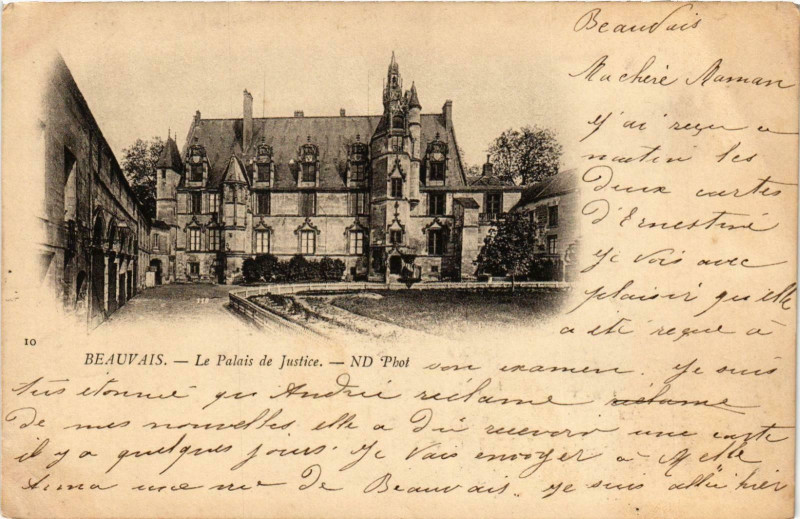 Beauvais
Ma chère Maman
J'ai reçu ce
matin les
deux cartes
d'Ernestine
Je vois avec
plaisir qu'elle
a été reçue à
10
BEAUVAIS. — Le Palais de Justice. — ND Phot
son examen. Je suis
très étonné qu André réclame réclame
de mes nouvelles, elle a dû recevoir une carte
il y a quelques jours. Je vais envoyer à Melle
une vue de Beauvais. Je suis allée hier